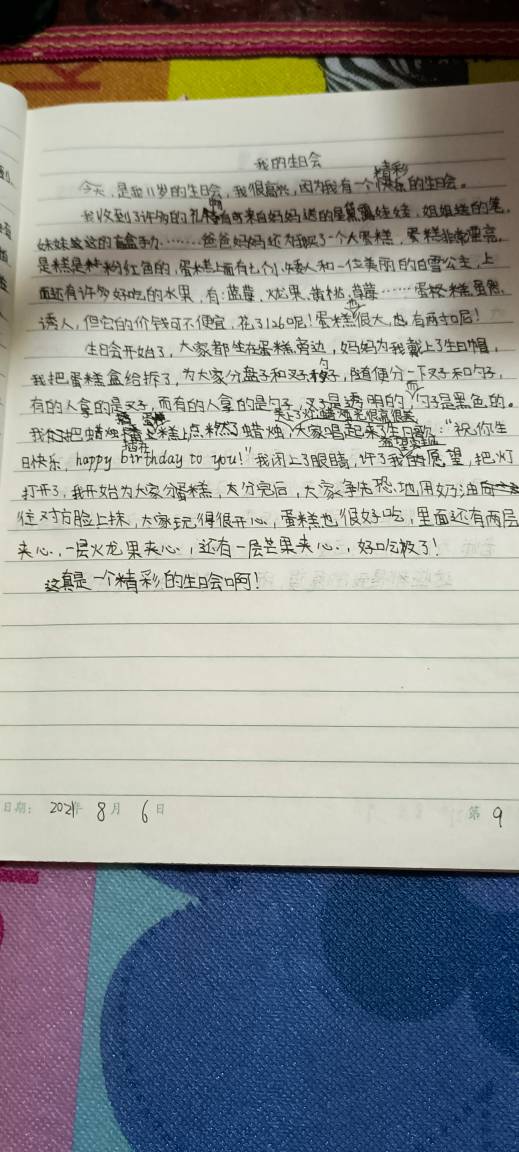 我的生日会
今天,是我11岁的生日会,我很高兴,因为我有一个精彩的生日会。
我收到了许多的礼物有来自妈妈送的是黛露娃娃,姐姐送的笔,
妹妹送的盲盒手办……爸爸妈妈还为我买了一个大蛋糕,蛋糕非常漂亮,
是糕是种粉红色的,蛋糕上面有七个小矮人和一位美丽的白雪公主,上
面还有许多好吃的水果,有:蓝莓、火龙果、黄桃、草莓……蛋糕虽然
诱人,但它的价钱可不便宜,花了126呢!蛋糕也很大,也有两寸呢!
生日会开始了,大家都坐在蛋糕旁边,妈妈为我戴上了生日帽,
我把蛋糕盒给拆了,为大家分盘子和叉子勺子,随便分一下叉子和勺子,
有的人拿的是叉子,而有的人拿的是勺子,叉子是透明的,而勺子是黑色的。
我们把蜡烛插在蛋糕上点燃了蜡烛,关上了灯蜡烛光很亮很美,大家唱起来生日歌:“祝你生
日快乐,happy birthday to you!”我闭上了眼睛,许了我的愿望,把灯
打开了,我开始为大家分蛋糕,大分完后,大家争先恐地用奶油
往对方脸上抹,大家玩得很开心,蛋糕也很好吃,里面还有两层
夹心,一层火龙果夹心,还有一层芒果夹心,好吃极了!
这真是一个精彩的生日会啊!
日期: 2021年 8月 6日 第 9